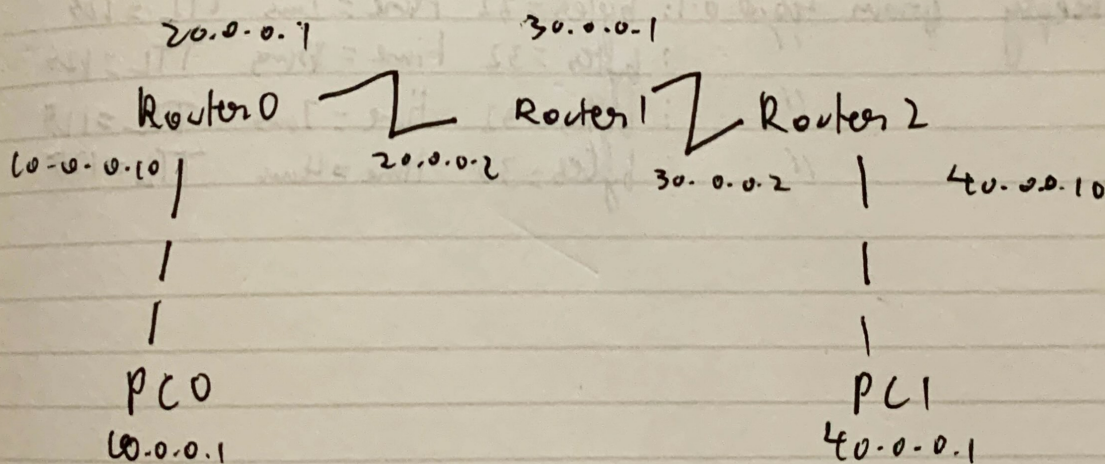 20.0.0.1 30.0.0.1
Router0 Router1 Router2
10.0.0.10 20.0.0.2 30.0.0.2 40.0.0.10
PC0 PC1
10.0.0.1 40.0.0.1